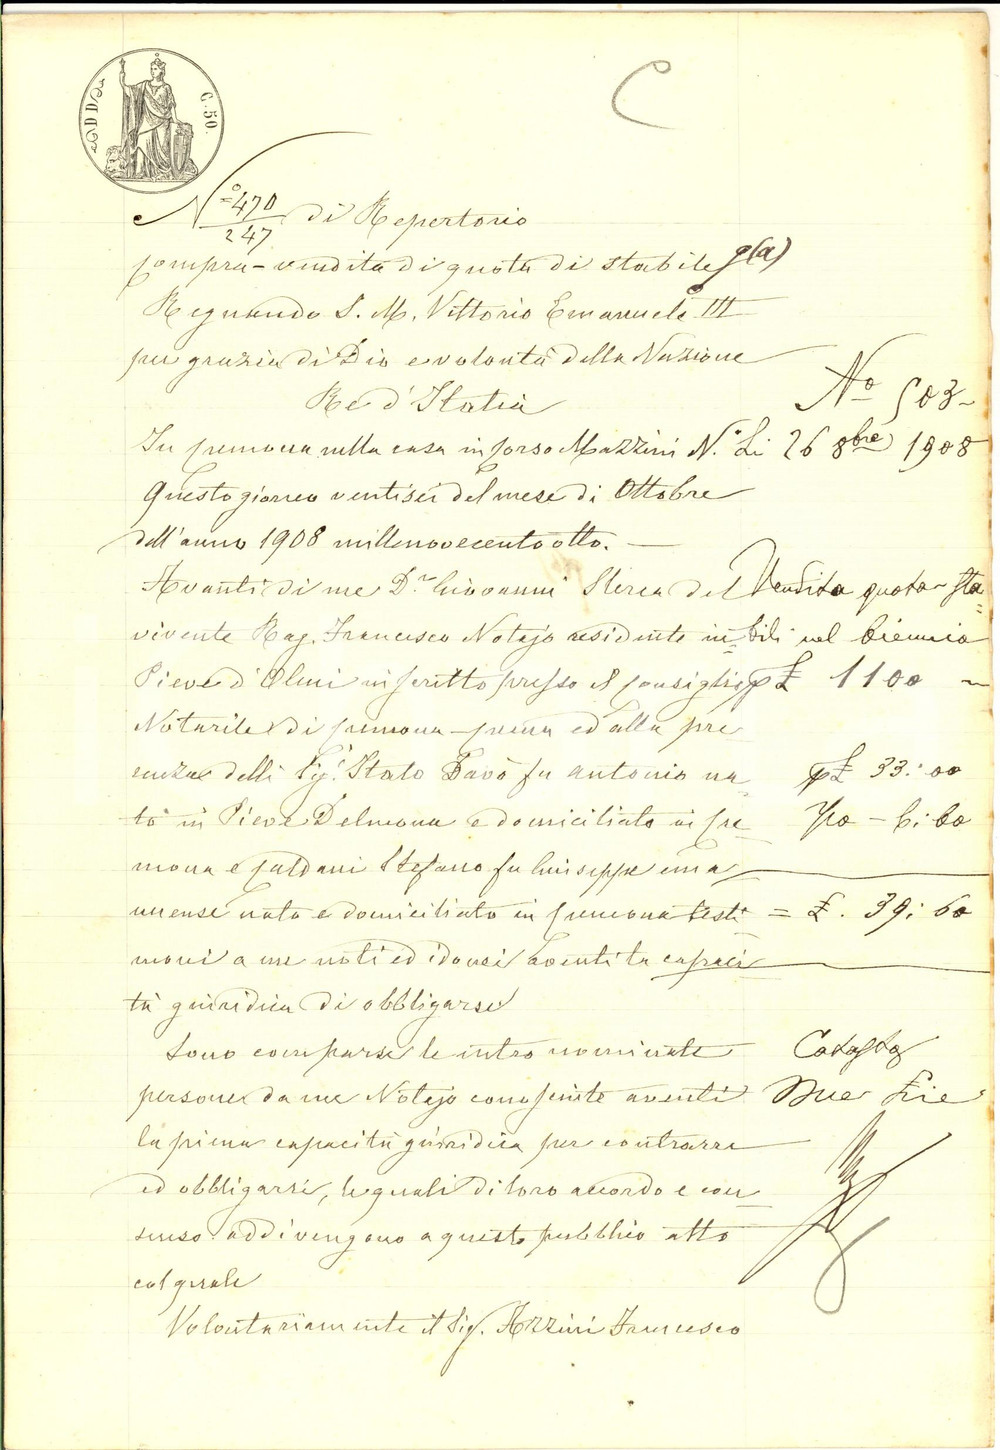 C
DD
C. 50.
N.º 470
247
di Repertorio
Compra-vendita di quota di stabile
Regnando S. M. Vittorio Emanuele III
per grazia di Dio e volontà della Nazione
Re d'Italia
Nº 503
In Cremona nella casa in Corso Mazzini N.º
Li 26 8bre 1908
Questo giorno ventisei del mese di Ottobre
dell'anno 1908 millenovecentootto.
Avanti di me D.r Giovanni Sterza del
vivente Rag. Francesco Notajo residente in
Pieve d'Olmi inscritto presso il Consiglio
Notarile di Cremona
ed alla pre
senza delli Sig.i Stato Davò fu Antonio na
to in Pieve Delmona e domiciliato in Cre
mona e Caldani Stefano fu Giuseppe
nato e domiciliato in Cremona testi
moni a me noti ed idonei aventi la capaci
tà giuridica di obbligarse
Vendita quota sta
bili nel biennio
£ 1100
£ 33:00
6:60
= £. 39:60
Sono comparse le intro nominate
persone da me Notajo conoscinte aventi
la piena capacità giuridica per contrarre
ed obbligarsi, le quali di loro accordo e con
senso addivengono a questo pubblico atto
col quale
Volontariamente il Sig. Azzini Francesco
Catasto
Due